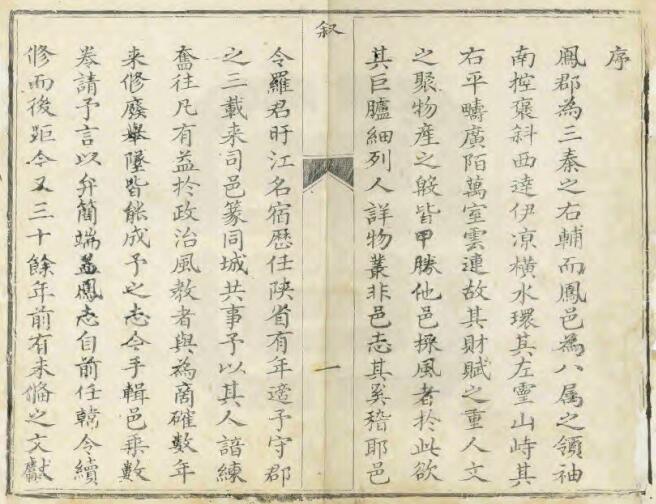 序
鳳郡為三秦之右輔而鳳邑為八屬之領袖
南控褒斜西達伊涼橫水環其左靈山峙其
右平疇廣陌萬室雲連故其財賦之重人文
之聚物產之殷皆甲勝他邑採風者於此欲
其巨臚細列人詳物叢非邑志其奚稽耶邑
叙
一
令羅君盱江名宿歷任陝省有年適予守郡
之三載来司邑篆同城共事予以其人諳練
奮往凡有益於政治風教者與為商確數年
来修廢舉墜皆能成予之志今手輯邑乗數
卷請予言以弁簡端盖鳳志自前任韓令續
修而後距今又三十餘年前有未備之文獻